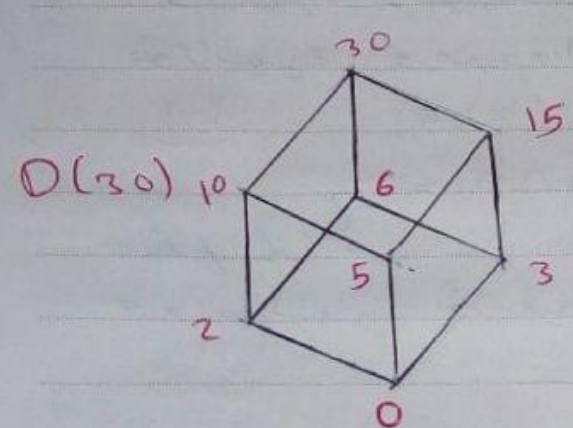 30
15
D(30) 10 6
5 3
2
0